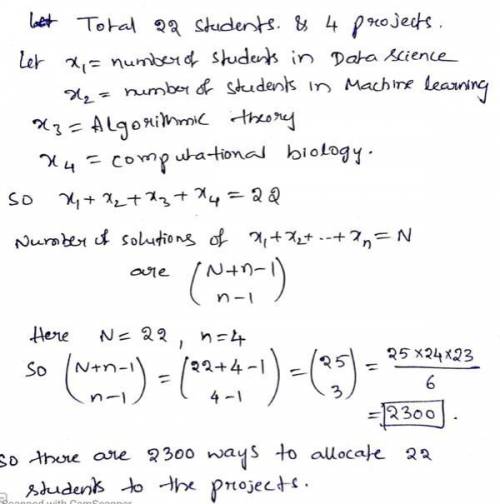 Total 22 students. & 4 projects.
Let x₁ = number of students in Data Science
x₂ = number of students in Machine Learning
x₃ = Algorithmic theory
x₄ = computational biology.
So x₁ + x₂ + x₃ + x₄ = 22
Number of solutions of x₁ + x₂ + ... + xₙ = N
are (N+n-1
n-1)
Here N = 22, n = 4
So (N+n-1 n-1) = (22+4-1 4-1) = (25 3) = 25×24×23 / 6
= 2300.
So there are 2300 ways to allocate 22
students to the projects.